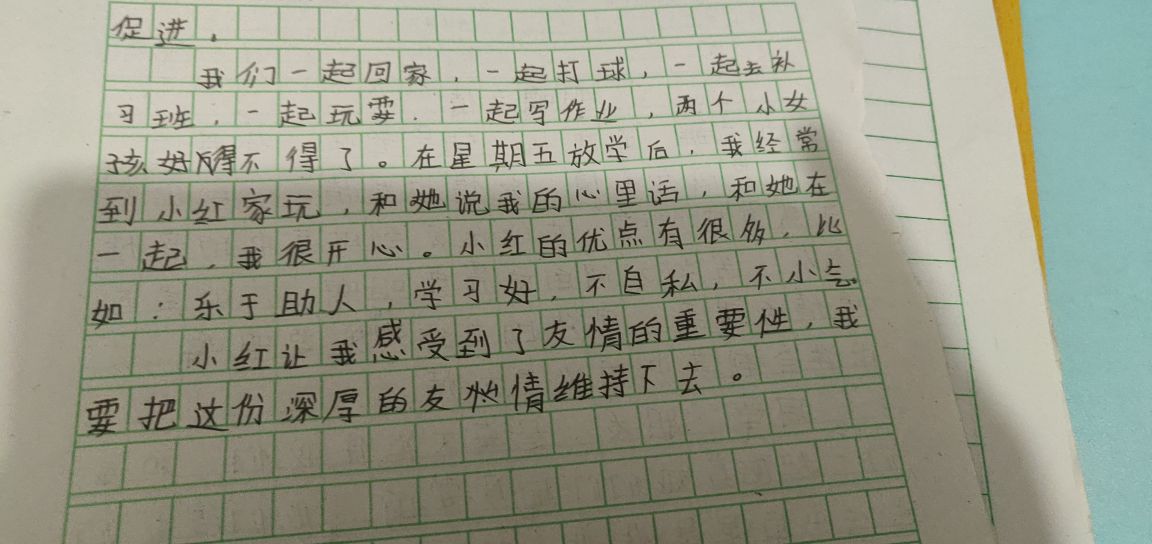 促进。
我们一起回家，一起打球，一起去补
习班，一起玩耍．一起写作业，两个小女
孩好得不得了。在星期五放学后，我经常
到小红家玩，和她说我的心里话，和她在
一起，我很开心。小红的优点有很多，比
如：乐于助人，学习好，不自私，不小气。
小红让我感受到了友情的重要性，我
要把这份深厚的友情维持下去。